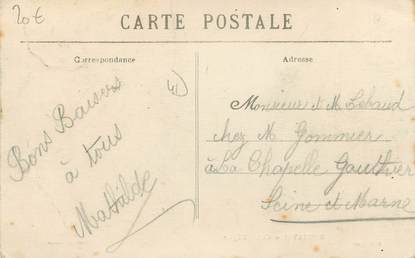 20€
CARTE POSTALE
Correspondance
Adresse
41
Bons Baisers
à tous
Mathilde
Monsieur et M. Lebaud
chez M. Gommier
à La Chapelle Gauthier
Seine et Marne